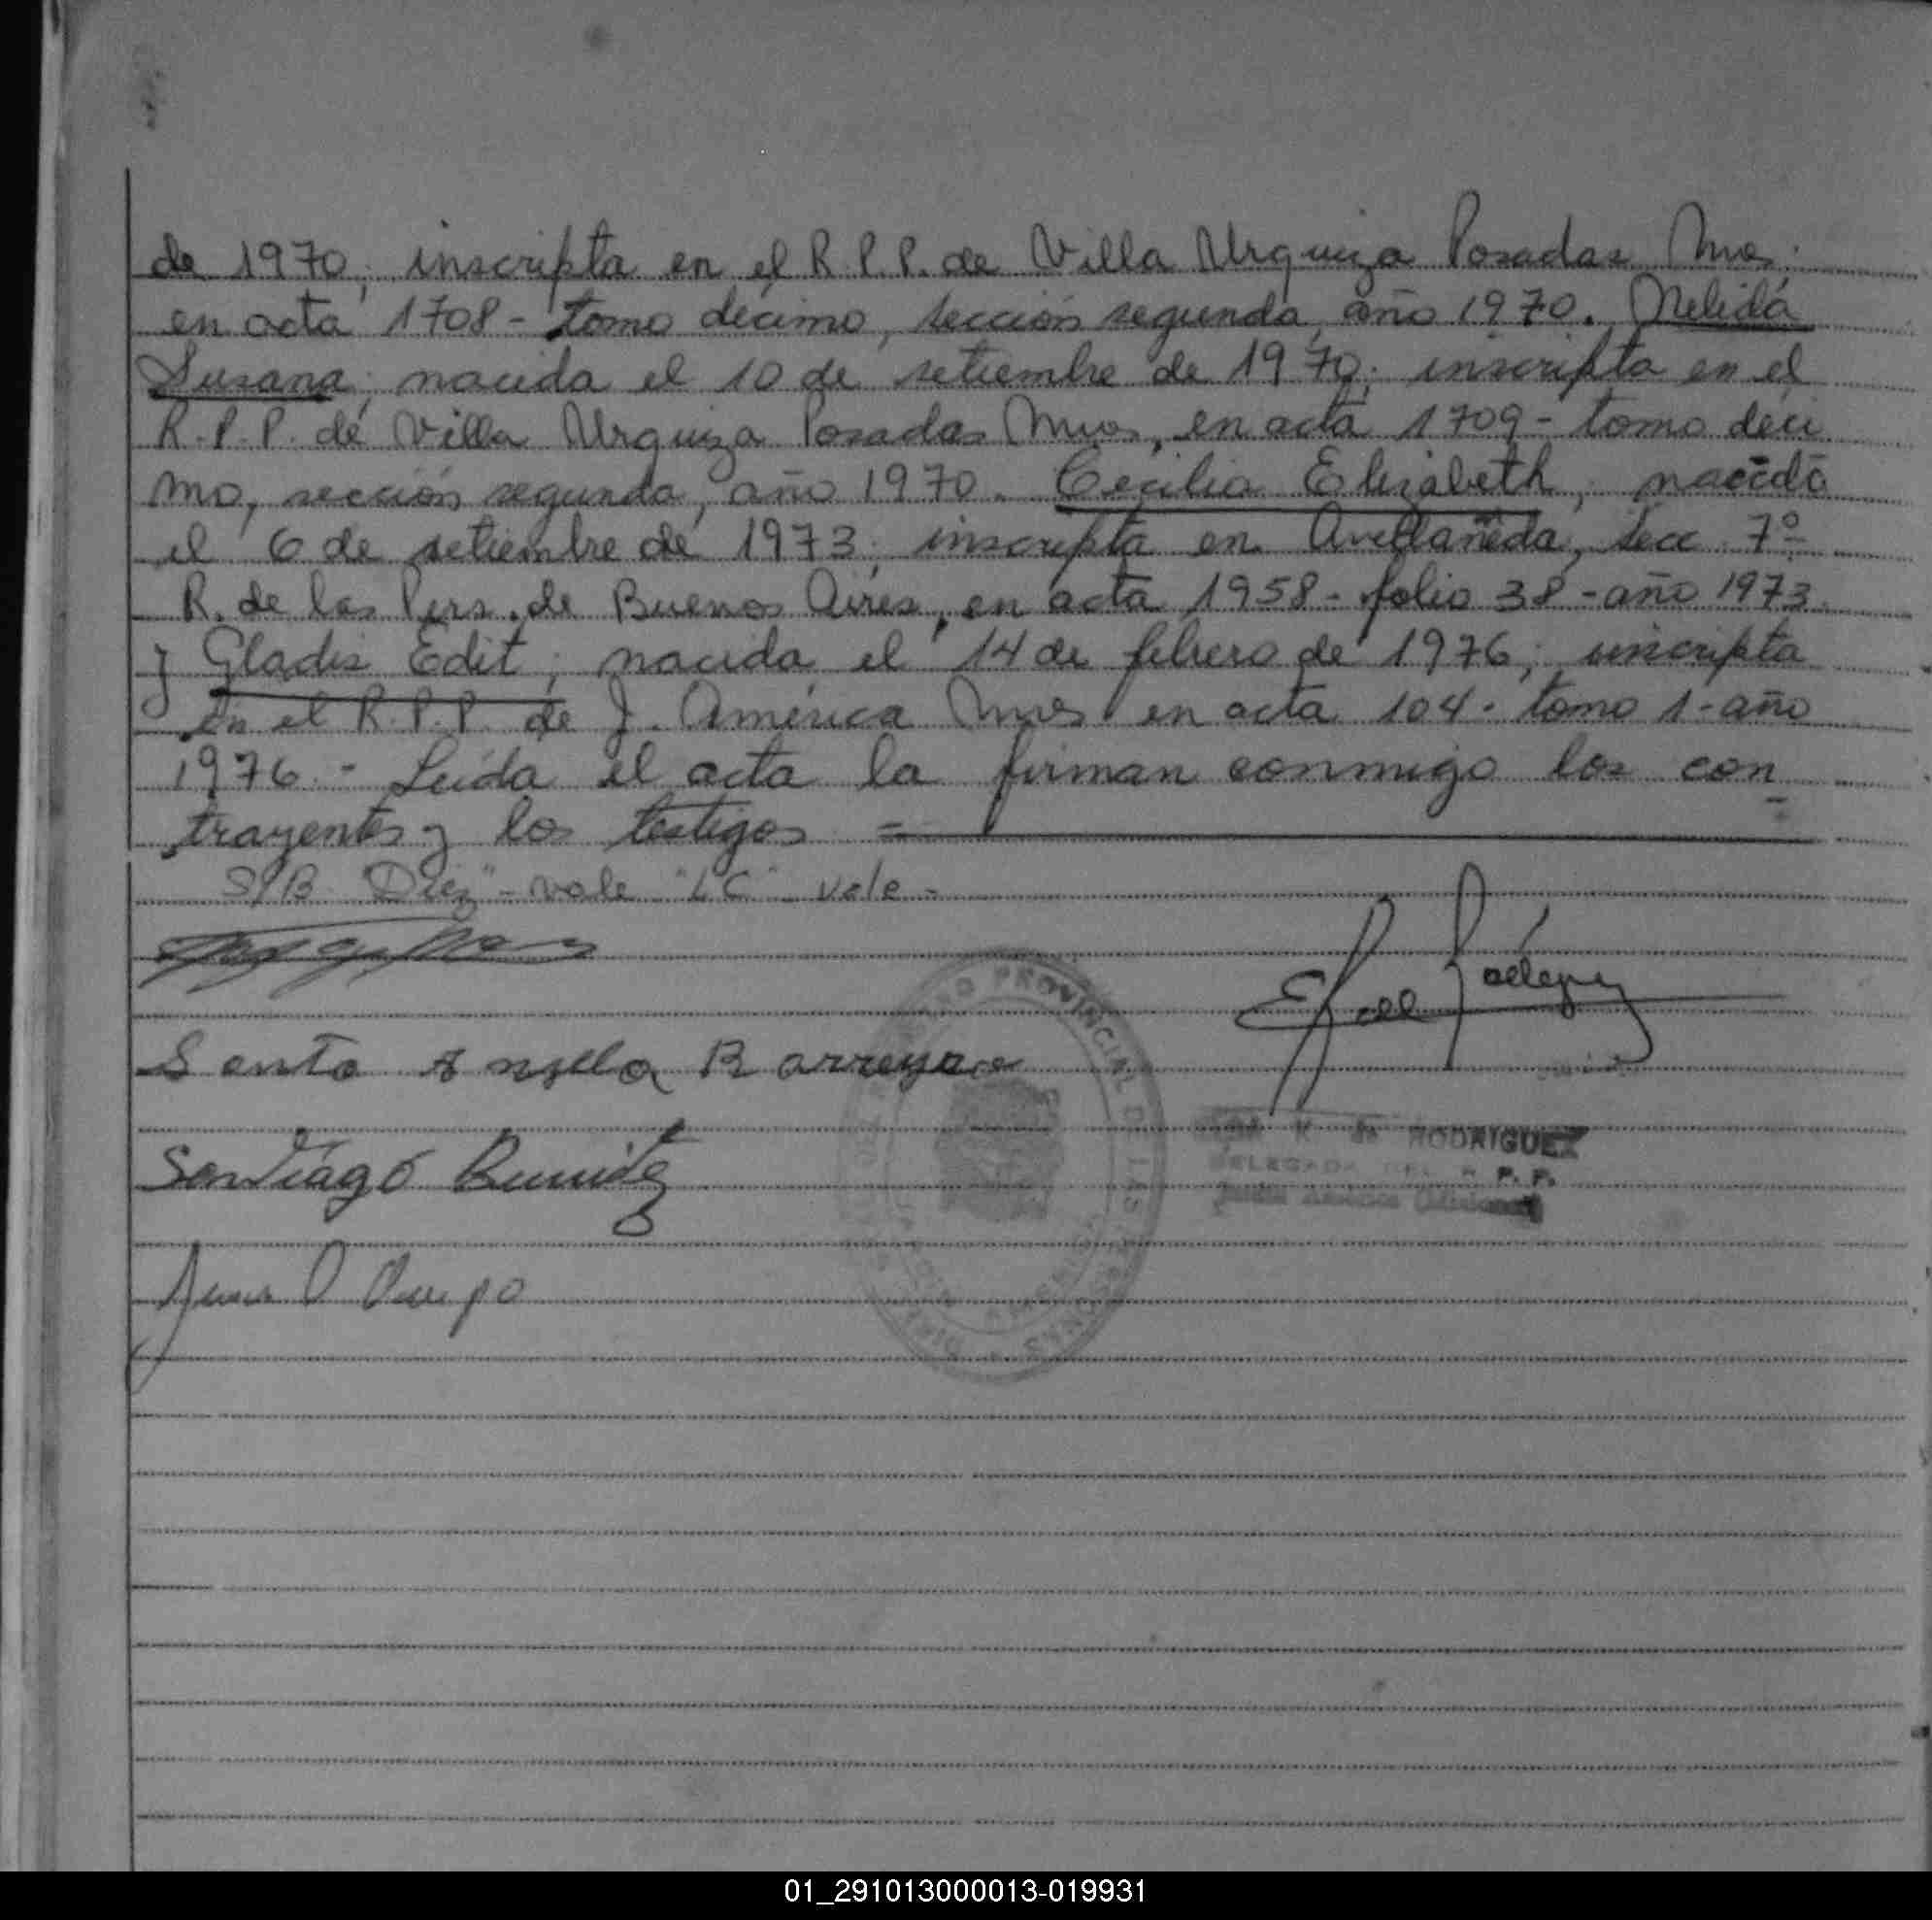 de 1970; inscripta en el R.P.P. de Villa Urquiza Posadas Mnes.
en acta 1708 - tomo décimo, sección segunda, año 1970. Nelida
Susana; nacida el 10 de setiembre de 1970; inscripta en el
R.P.P. de Villa Urquiza Posadas Mnes, en acta 1709 - tomo déci
mo, sección segunda, año 1970. Cecilia Elizabeth; nacida
el 6 de setiembre de 1973; inscripta en Avellaneda, secc 7º
R. de las Pers. de Buenos Aires, en acta 1958 - folio 38 - año 1973.
y Gladis Edit; nacida el 14 de febrero de 1976; inscripta
en el R.P.P. de J. América Mnes en acta 104 - tomo 1 - año
1976 - Leída el acta la firman conmigo los con
trayentes y los testigos =
S/B "Diez" - vale "LC" vale -
REGISTRO PROVINCIAL DE LAS PERSONAS
Barreyro
RODRIGUEZ
Santiago
DELEGADA DEL R.P.P.
Jardín América (Misiones)
01_291013000013-019931